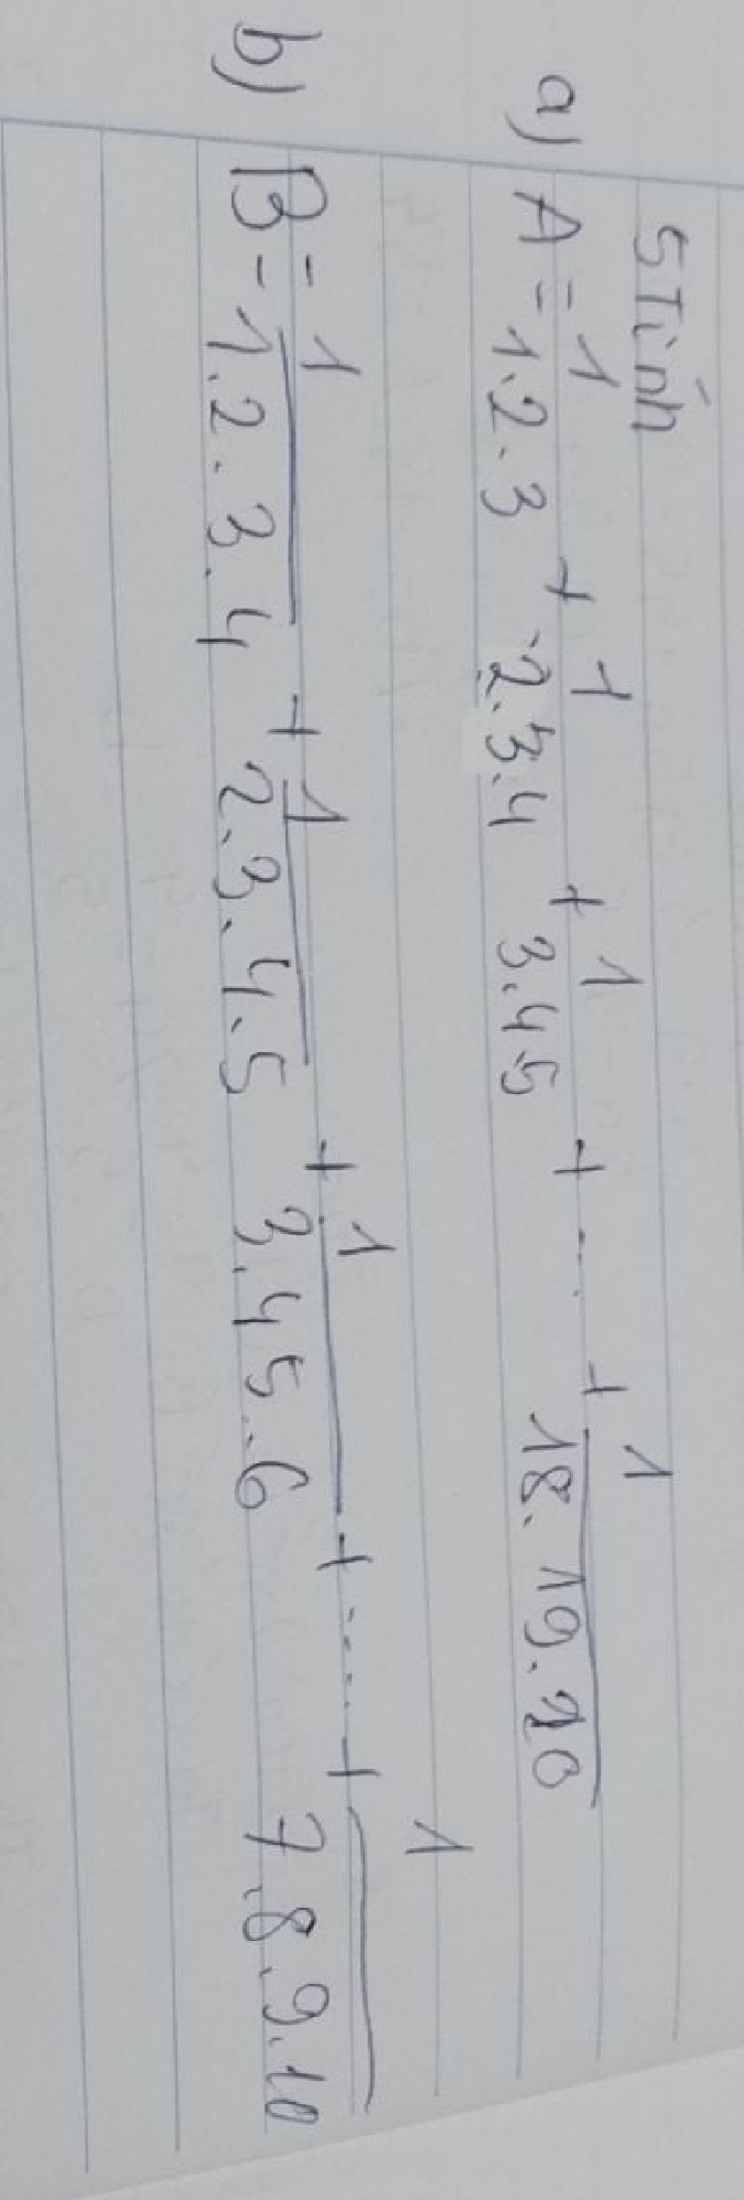 5 Tính
a) A = 1/1.2.3 + 1/2.3.4 + 1/3.4.5 + ... + 1/18.19.20
b) B = 1/1.2.3.4 + 1/2.3.4.5 + 1/3.4.5.6 + ..... + 1/7.8.9.10